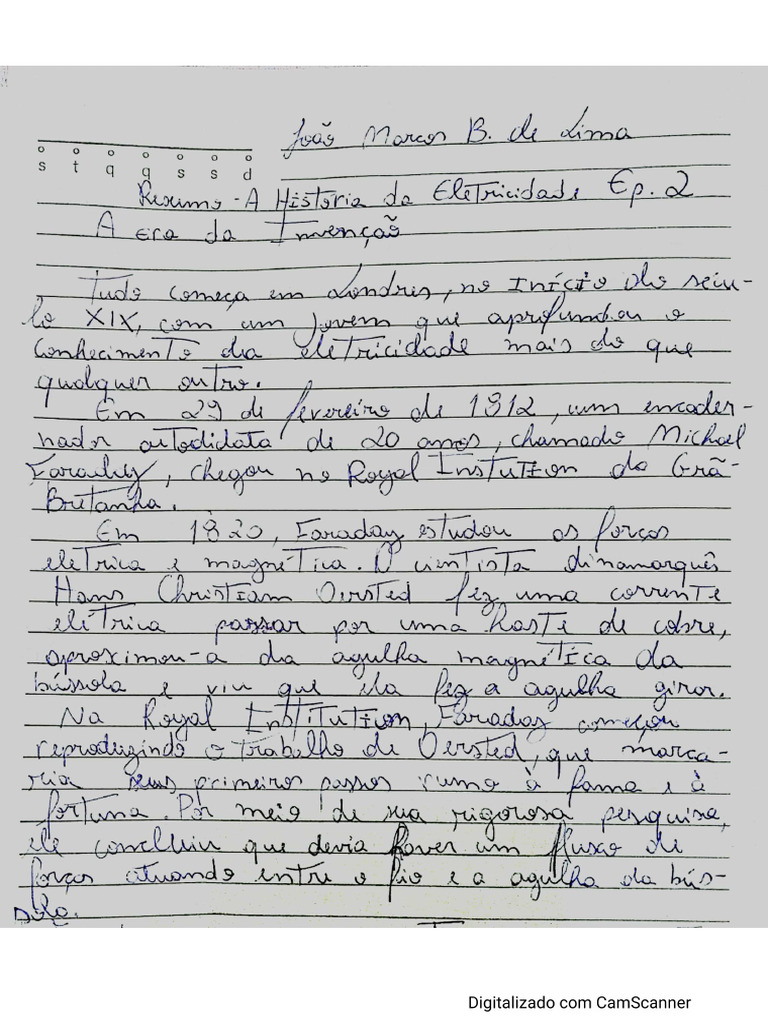 João Marcos B. de Lima
s t q q s s d
Resumo - A Historia da Eletricidade Ep. 2
A era da Invenção
Tudo começa em Londres, no início do sécu-
lo XIX, com um jovem que aprofundou o
conhecimento da eletricidade mais do que
qualquer outro.
Em 29 de fevereiro de 1812, um encader-
nador autodidata de 20 anos, chamado Michael
Faraday, chegou no Royal Instution da Grã-
Bretanha.
Em 1820, Faraday estudou as forças
eletrica e magnética. O cientista dinamarquês
Hans Christiam Oersted fez uma corrente
elétrica passar por uma haste de cobre,
aproximou-a da agulha magnética da
bússola e viu que ela fez a agulha girar.
Na Royal Institution, Faraday começou
reproduzindo o trabalho de Oersted, que marca-
ria seus primeiros passos rumo à fama e à
fortuna. Por meio de sua rigorosa pesquisa,
ele concluiu que devia haver um fluxo de
forças atuando entre o fio e a agulha da bús-
sola.
Digitalizado com CamScanner